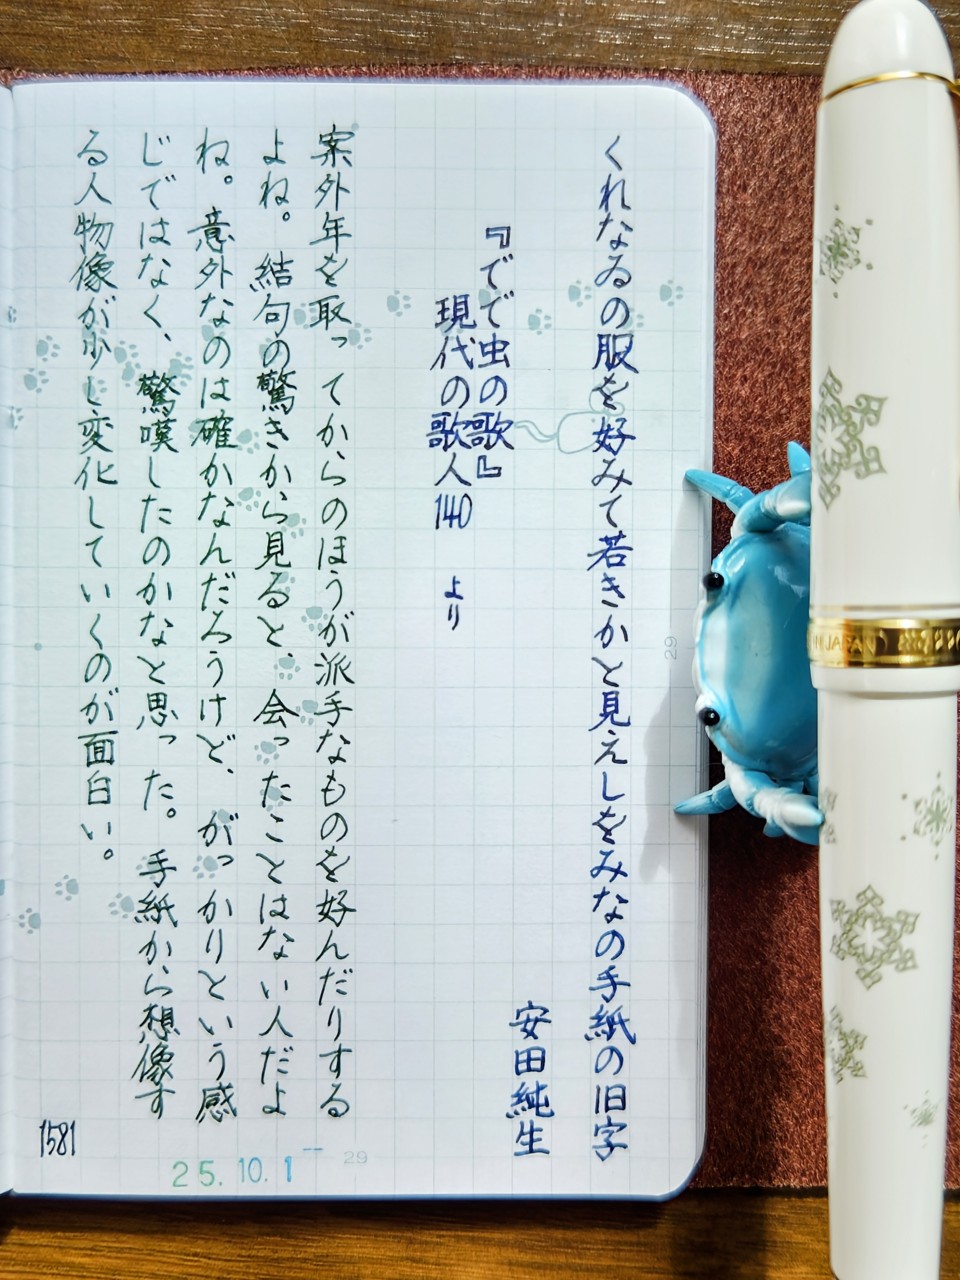 くれなゐの服を好みて若きかと見えしをみなの手紙の旧字
安田純生
『でで虫の歌』
現代の歌人140 より
案外年を取ってからのほうが派手なものを好んだりする
よね。結句の驚きから見ると、会ったことはない人だよ
ね。意外なのは確かなんだろうけど、がっかりという感
じではなく、驚嘆したのかなと思った。手紙から想像す
る人物像が少し変化していくのが面白い。
1581
25.10.1
29
29
IN JAPAN